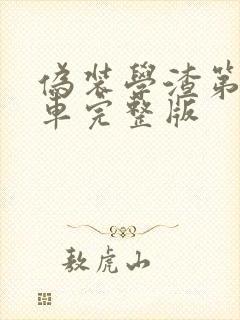 偽裝學渣第
車完整版
敖虎山